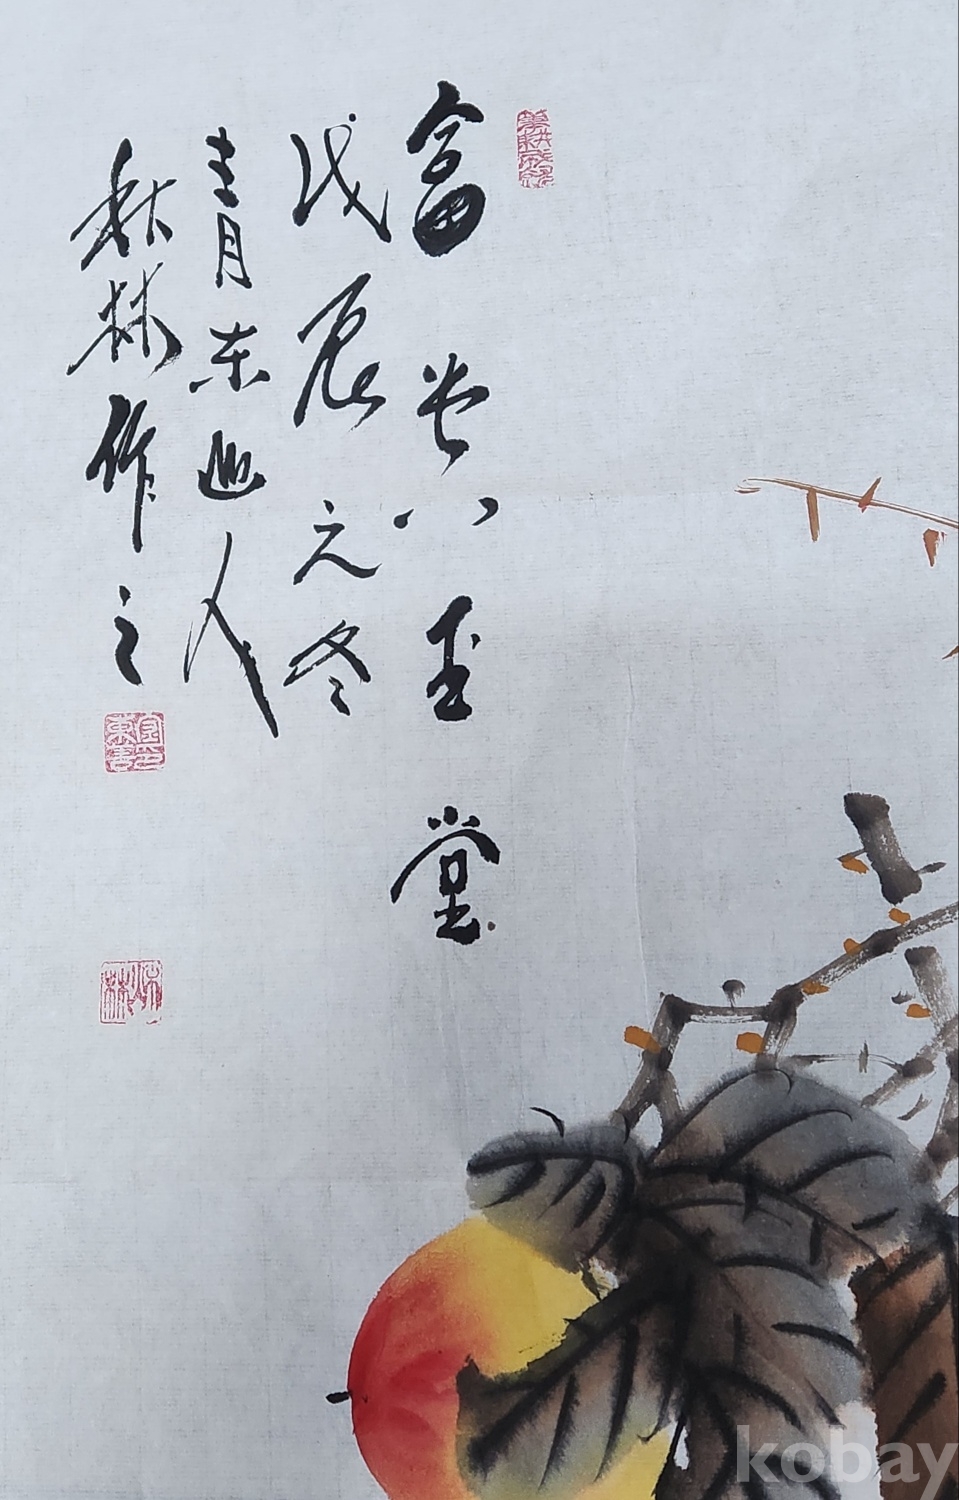 富貴玉堂
戊辰元冬
青东人
秋林作之
kobay